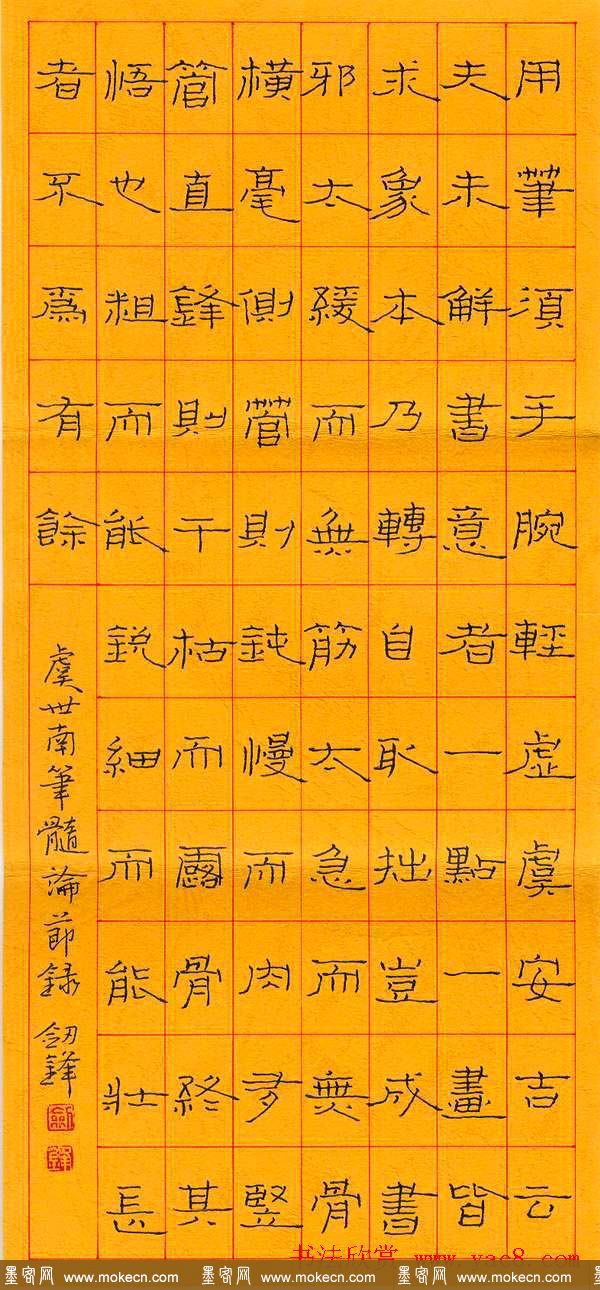 用筆須手腕輕虛虞安吉云
夫未解書意者一點一畫皆
求象本乃轉自取拙豈成書
邪太緩而無筋太急而無骨
橫毫側管則鈍慢而肉多豎
管直鋒則干枯而露骨終其
悟也粗而能銳細而能壯長
者不為有餘
虞世南筆髓論節錄 劒鋒
書法欣赏 www.yac8.com
墨客网 www.mokecn.com 墨客网 www.mokecn.com 墨客网 www.mokecn.com